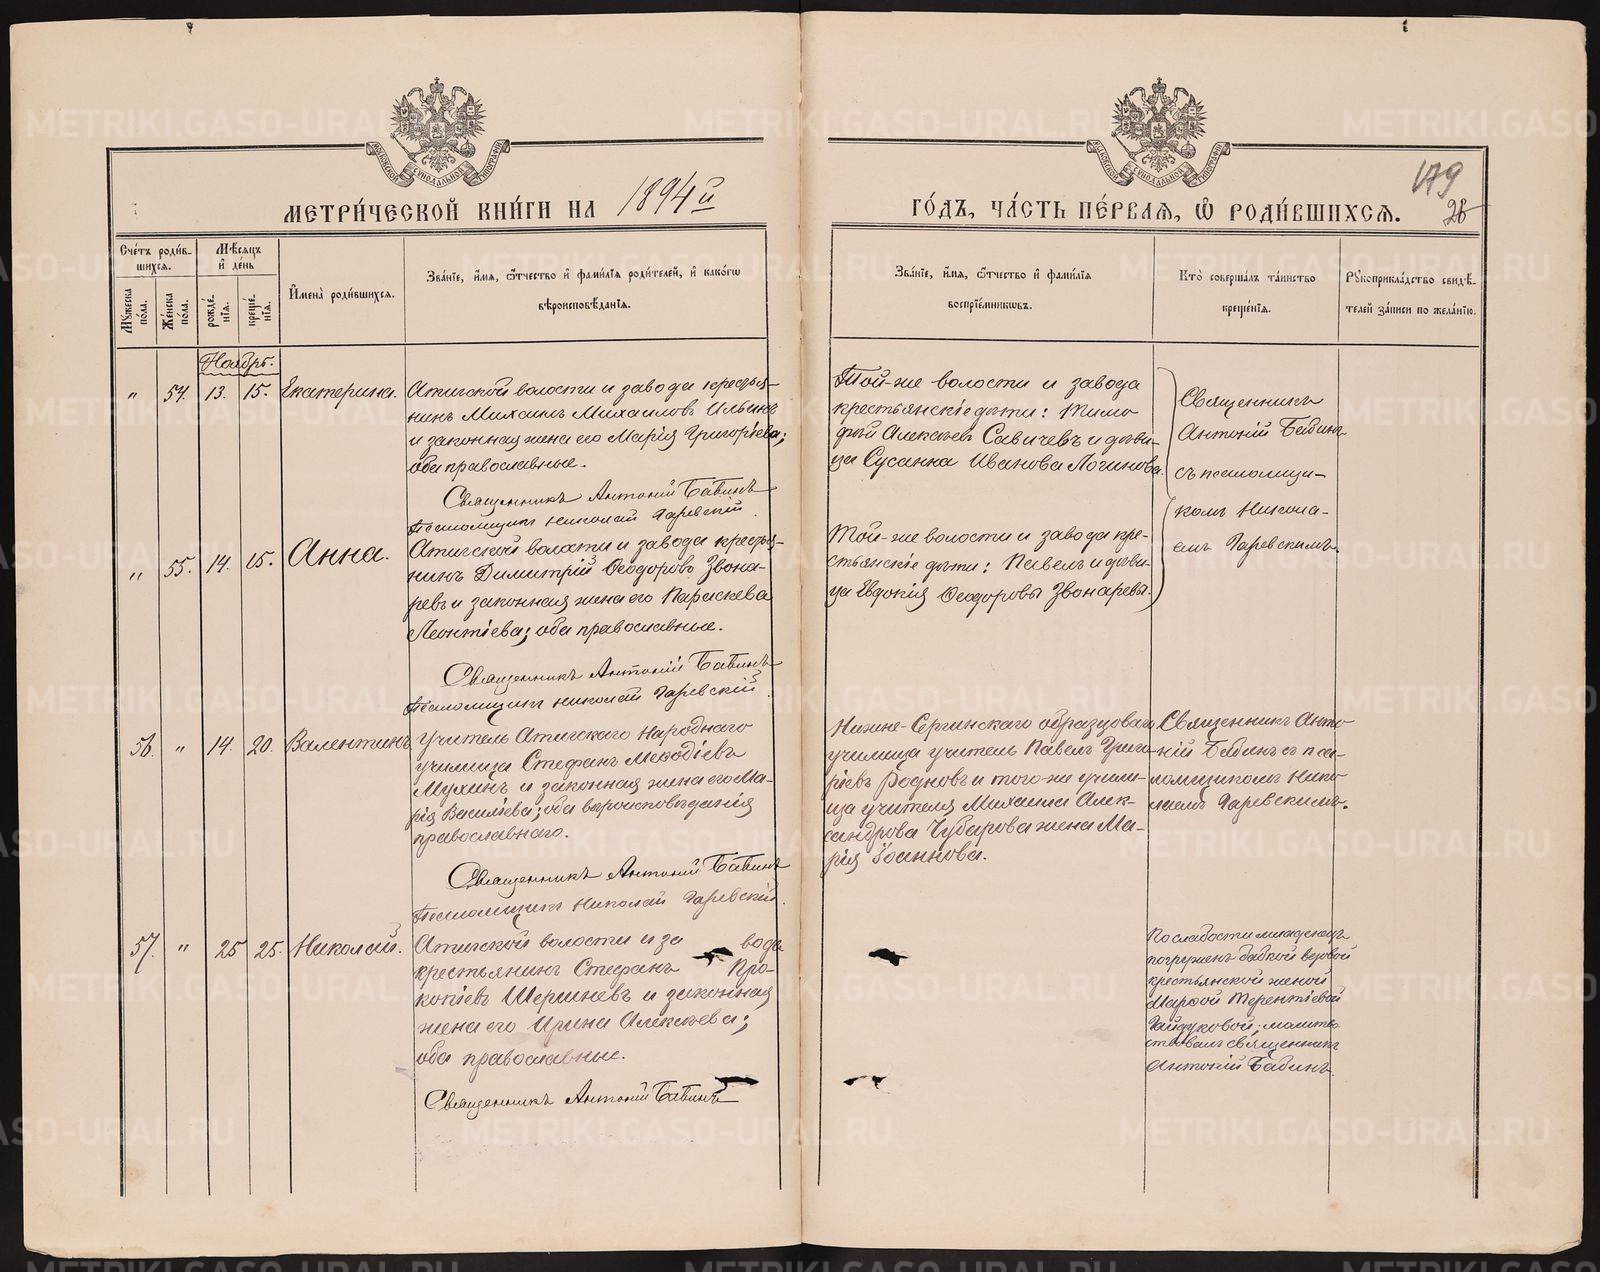 МЕТРИ́ЧЕСКОЙ КНИ́ГИ НА 1894й
ГО́ДЪ, ЧА́СТЬ ПЕ́РВАѦ, Ѡ РОДИ́ВШИХСѦ.
179
28
Сче́тъ роди́в-
шихся.
Мѣ́сяцъ
и де́нь
Мꙋжеска по́ла.
Же́нска по́ла.
рожде́нїѧ.
креще́нїѧ.
И҆мена̀ роди́вшихсѧ.
Зва́нїе, и҆́мѧ, ѻ҆́тчество и҆ фами́лїѧ роди́телей, и҆ како́гѡ
вѣроисповѣ́данїѧ.
Зва́нїе, и҆́мѧ, ѻ҆́тчество и҆ фами́лїѧ
воспрїе́мникѡвъ.
Кто̀ соверша́лъ та́инство
креще́нїѧ.
Рꙋкоприкла́дство свидѣ́-
телей за́писи по жела́нїю.
Ноябрь.
" 54. 13. 15. Екатерина.
Атигской волости и завода крестья-
нинъ Михаилъ Михаиловъ Ильинъ
и законная жена его Марія Григорьева;
оба православные.
Священникъ Антоній Бабинъ
Псаломщикъ Николай Гаревскій.
Той-же волости и завода
крестьянскіе дѣти: Тимо
фей Алексѣевъ Савичевъ и дѣви-
ца Сусанна Иванова Логинова.
Священникъ
Антоній Бабинъ
съ псаломщи-
комъ Никола-
емъ Гаревскимъ.
" 55. 14. 15. Анна.
Атигской волости и завода крестья-
нинъ Димитрій Ѳеодоровъ Звона-
ревъ и законная жена его Параскева
Леонтіева; оба православные.
Священникъ Антоній Бабинъ
Псаломщикъ Николай Гаревскій.
Той-же волости и завода кре-
стьянскіе дѣти: Павелъ и дѣви-
ца Евдокія Ѳеодоровы Звонаревы.
56. " 14. 20. Валентинъ
Учитель Атигскаго Народнаго
училища Стефанъ Меѳодіевъ
Мухинъ и законная жена его Ма-
рія Василіева; оба вѣроисповѣданія
православнаго.
Священникъ Антоній Бабинъ
Псаломщикъ Николай Гаревскій.
Нижне-Сергинскаго образцоваго
училища учитель Павелъ Григо-
ріевъ Родновъ и того-же учили-
ща учителя Михаила Алек-
сандрова Чубарова жена Ма-
рія Іоаннова.
Священникъ Анто
ній Бабинъ съ пса-
ломщикомъ Нико
лаемъ Гаревскимъ.
57. " 25 25. Николай.
Атигской волости и за вода
крестьянинъ Стефанъ Про-
копіевъ Шершневъ и законная
жена его Ирина Алексѣева;
оба православные.
Священникъ Антоній Бабинъ
По слабости младенецъ
погруженъ бабкой вдовой
крестьянской женой
Марѳой Терентіевой
Гайдуковой; молитв
ствовалъ священникъ
Антоній Бабинъ.